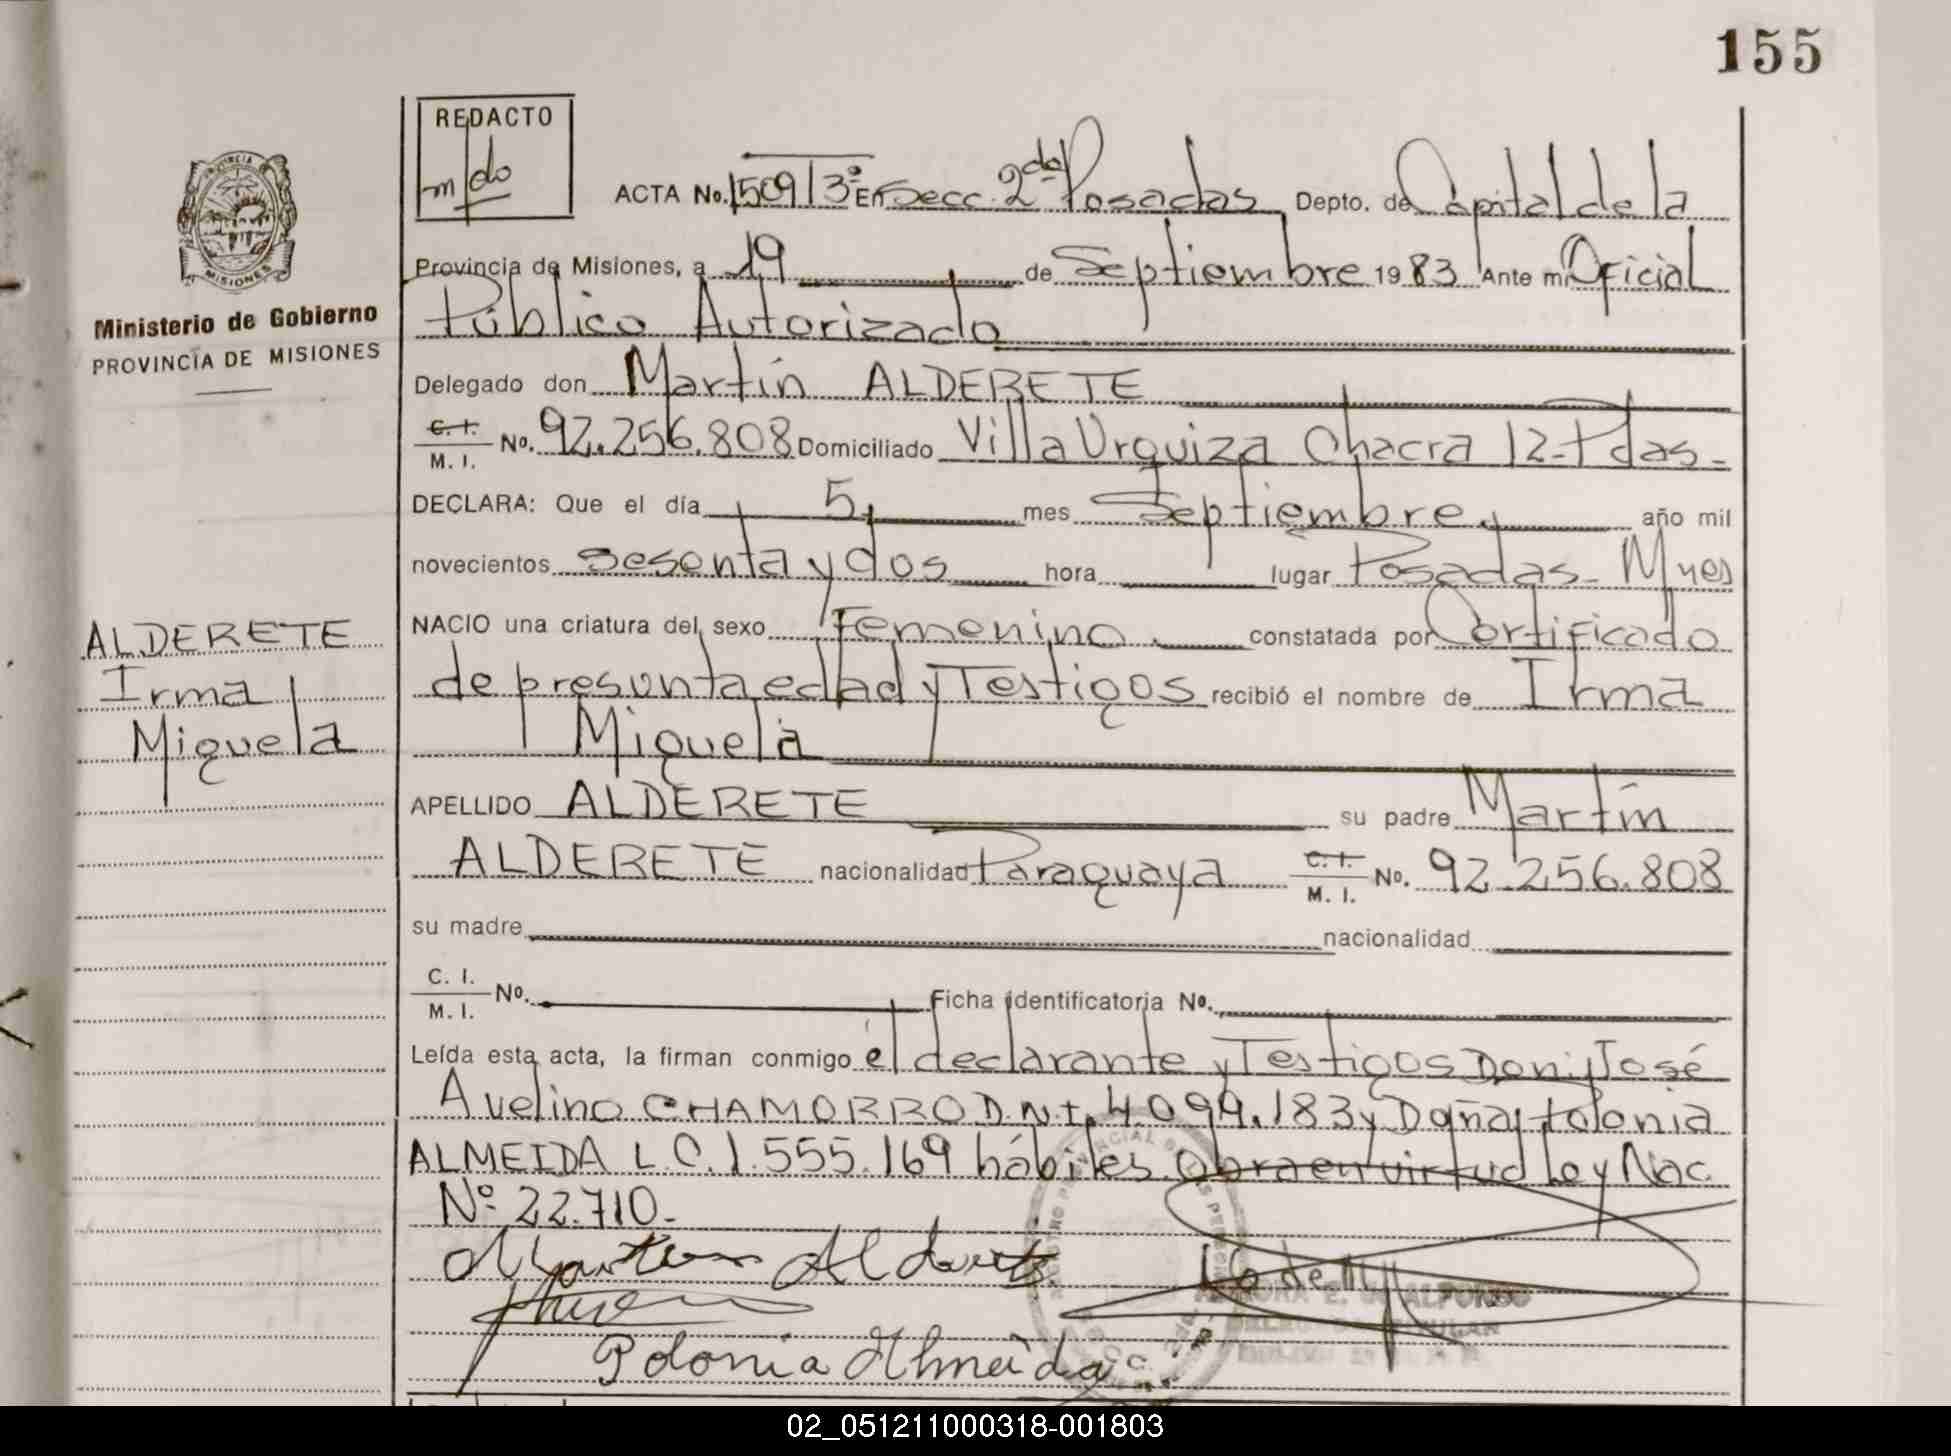 155
REDACTO
m/do
ACTA No. 1509/3º En Secc. 2da Posadas Depto. de Capital de la
Provincia de Misiones, a 19 de Septiembre 1983 Ante mi Oficial
Público Autorizado
Ministerio de Gobierno
PROVINCIA DE MISIONES
Delegado don Martín ALDERETE
C. I. M. I. No. 92.256.808 Domiciliado Villa Urquiza Chacra 12-Pdas-
DECLARA: Que el día 5 mes Septiembre año mil
novecientos sesenta y dos hora lugar Posadas- Mnes
NACIO una criatura del sexo Femenino constatada por Certificado
de presunta edad y Testigos recibió el nombre de Irma
Miguela
ALDERETE
Irma
Miguela
APELLIDO ALDERETE su padre Martín
ALDERETE nacionalidad Paraguaya C. I. M. I. No. 92.256.808
su madre nacionalidad
C. I. M. I. No. Ficha identificatoria No.
Leída esta acta, la firman conmigo el declarante y Testigos Don: José
Avelino CHAMORRO D.N.I. 4.099.183 y Doña Polonia
ALMEIDA L.C. 1.555.169 hábiles. Obra en virtud Ley Nac.
Nº 22.710.-
Martin Alderete
Polonia Almeida
02_051211000318-001803